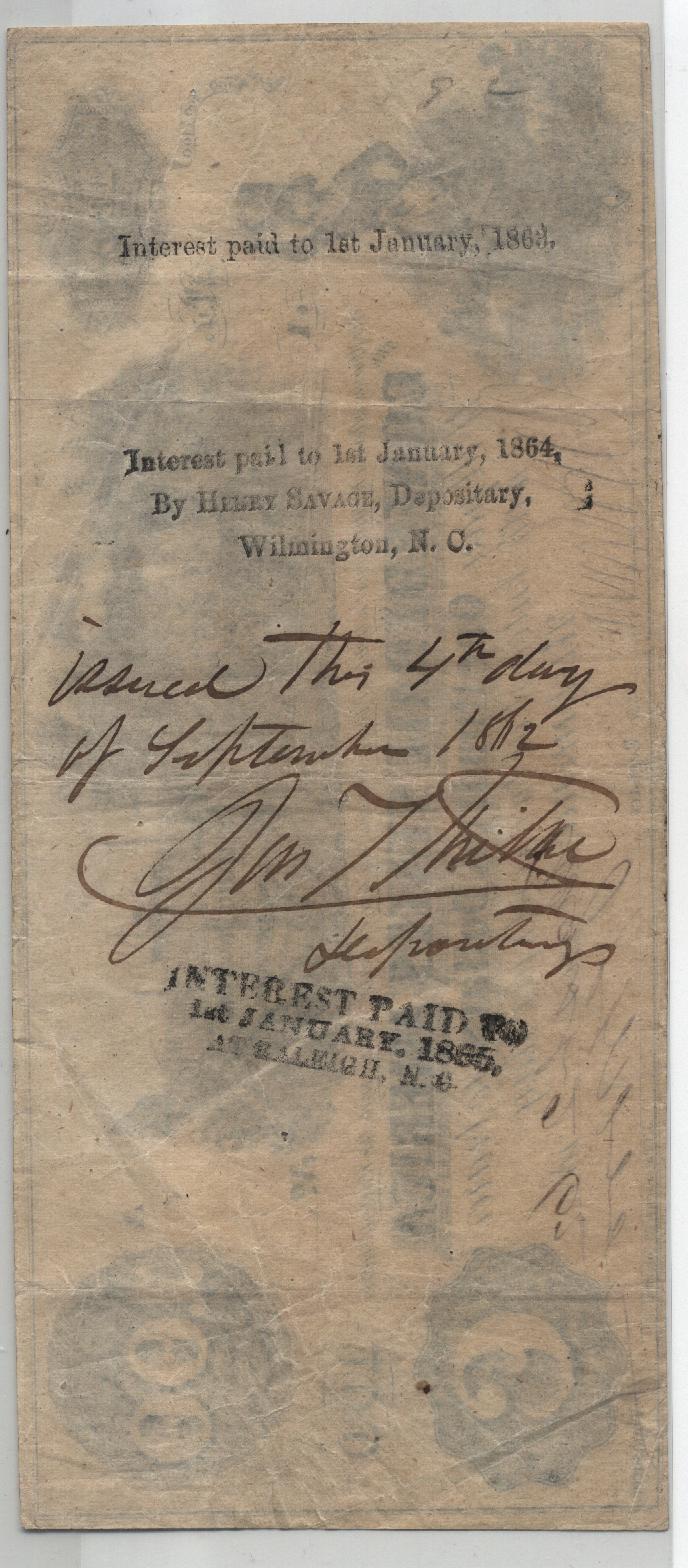 Interest paid to 1st January, 1863.
Interest paid to 1st January, 1864,
By HENRY SAVAGE, Depositary,
Wilmington, N. C.
issued this 4th day
of September 1862
Depositary
INTEREST PAID TO
1st JANUARY, 1865,
AT RALEIGH, N. C.